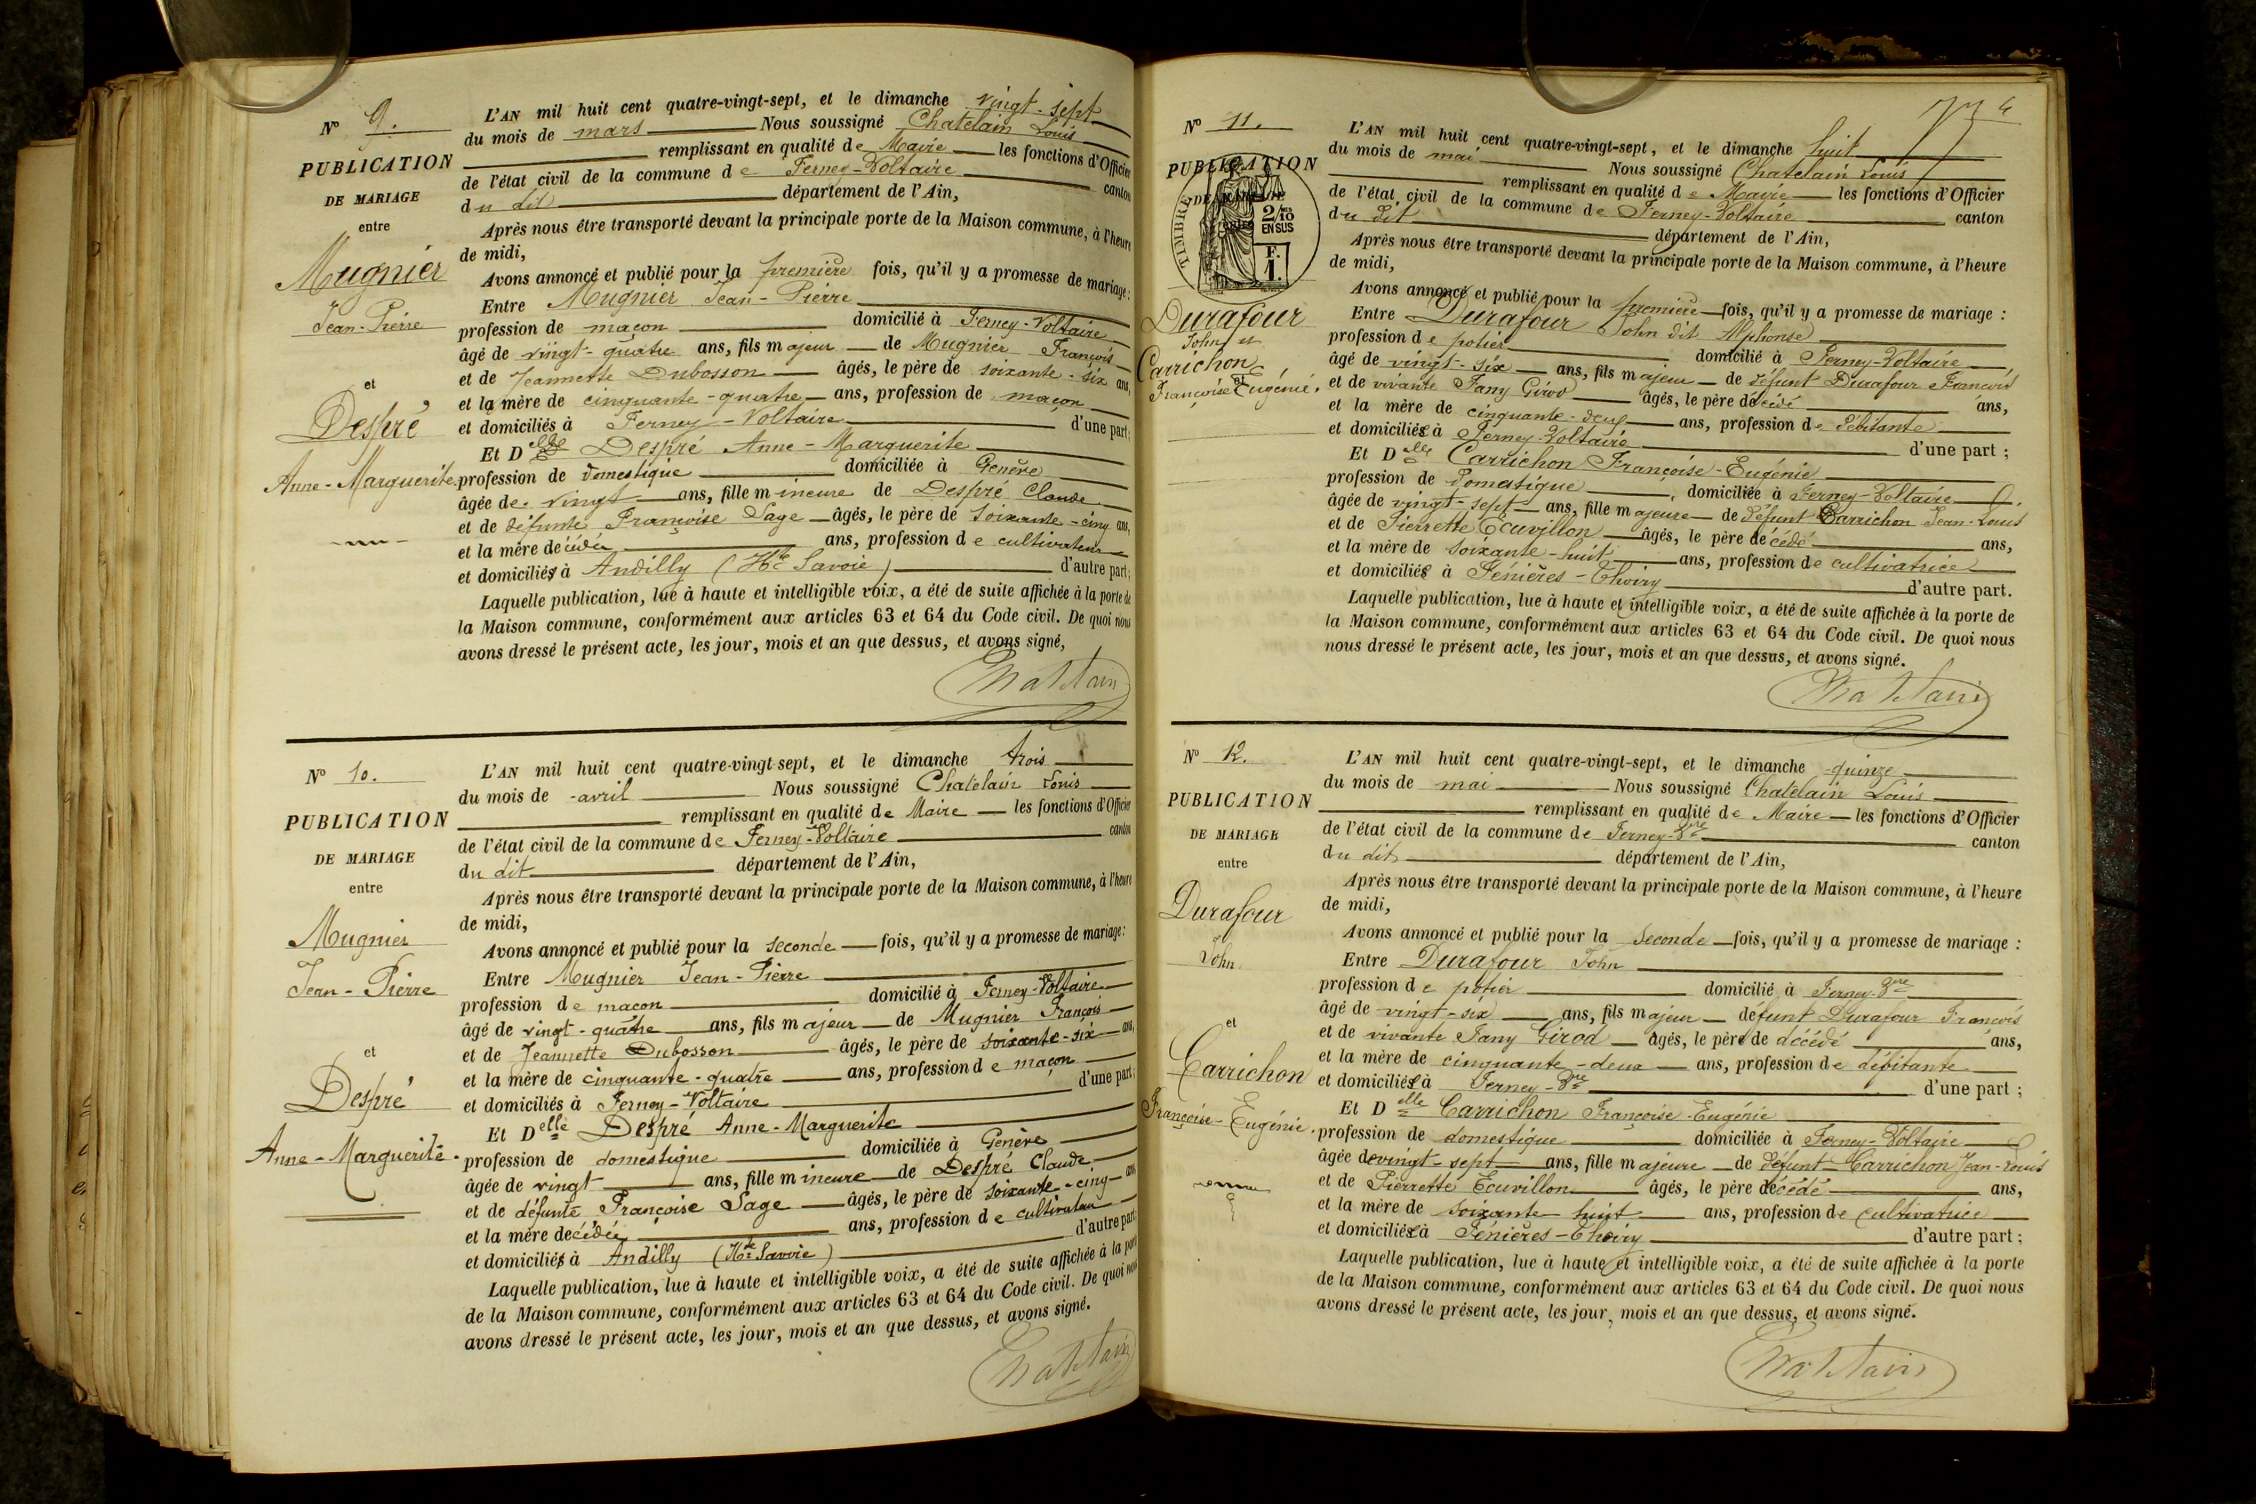 N° 9.
PUBLICATION
DE MARIAGE
entre
Mugnier
Jean-Pierre
et
Despré
Anne-Marguerite
L'AN mil huit cent quatre-vingt-sept, et le dimanche vingt-sept
du mois de mars Nous soussigné Chatelain Louis
remplissant en qualité de Maire les fonctions d'Officier
de l'état civil de la commune de Ferney-Voltaire canton
du dit département de l'Ain,
Après nous être transporté devant la principale porte de la Maison commune, à l'heure
de midi,
Avons annoncé et publié pour la première fois, qu'il y a promesse de mariage :
Entre Mugnier Jean-Pierre
profession de maçon domicilié à Ferney-Voltaire
âgé de vingt-quatre ans, fils majeur de Mugnier François
et de Jeannette Dubosson âgés, le père de soixante-six ans,
et la mère de cinquante-quatre ans, profession de maçon
et domiciliés à Ferney-Voltaire d'une part;
Et Delle Despré Anne-Marguerite
profession de domestique domiciliée à Genève
âgée de vingt ans, fille mineure de Despré Claude
et de défunte Françoise Sage âgés, le père de soixante-cinq ans,
et la mère décédée ans, profession de cultivateur
et domiciliés à Andilly (Hte Savoie) d'autre part;
Laquelle publication, lue à haute et intelligible voix, a été de suite affichée à la porte de
la Maison commune, conformément aux articles 63 et 64 du Code civil. De quoi nous
avons dressé le présent acte, les jour, mois et an que dessus, et avons signé,
Chatelain
N° 10.
PUBLICATION
DE MARIAGE
entre
Mugnier
Jean-Pierre
et
Despré
Anne-Marguerite.
L'AN mil huit cent quatre-vingt sept, et le dimanche trois
du mois de avril Nous soussigné Chatelain Louis
remplissant en qualité de Maire les fonctions d'Officier
de l'état civil de la commune de Ferney-Voltaire canton
du dit département de l'Ain,
Après nous être transporté devant la principale porte de la Maison commune, à l'heure
de midi,
Avons annoncé et publié pour la seconde fois, qu'il y a promesse de mariage :
Entre Mugnier Jean-Pierre
profession de maçon domicilié à Ferney-Voltaire
âgé de vingt-quatre ans, fils majeur de Mugnier François
et de Jeannette Dubosson âgés, le père de soixante-six ans,
et la mère de cinquante-quatre ans, profession de maçon
et domiciliés à Ferney-Voltaire d'une part;
Et Delle Despré Anne-Marguerite
profession de domestique domiciliée à Genève
âgée de vingt ans, fille mineure de Despré Claude
et de défunte Françoise Sage âgés, le père de soixante-cinq ans,
et la mère décédée ans, profession de cultivateur
et domiciliés à Andilly (Hte Savoie) d'autre part
Laquelle publication, lue à haute et intelligible voix, a été de suite affichée à la porte
de la Maison commune, conformément aux articles 63 et 64 du Code civil. De quoi nous
avons dressé le présent acte, les jour, mois et an que dessus, et avons signé.
Chatelain
N° 11.
PUBLICATION
DE MARIAGE
TIMBRE
2/10
EN SUS
F.
1.
Durafour
John et
Carrichon
Françoise Eugénie.
L'AN mil huit cent quatre-vingt-sept, et le dimanche huit
du mois de mai Nous soussigné Chatelain Louis
remplissant en qualité de Maire les fonctions d'Officier
de l'état civil de la commune de Ferney-Voltaire canton
du dit département de l'Ain,
Après nous être transporté devant la principale porte de la Maison commune, à l'heure
de midi,
Avons annoncé et publié pour la première fois, qu'il y a promesse de mariage :
Entre Durafour John dit Alphonse
profession de potier domicilié à Ferney-Voltaire
âgé de vingt-six ans, fils majeur de défunt Durafour François
et de vivante Fany Girod âgés, le père décédé ans,
et la mère de cinquante-deux ans, profession de débitante
et domiciliée à Ferney-Voltaire d'une part ;
Et Delle Carrichon Françoise-Eugénie
profession de domestique, domiciliée à Ferney-Voltaire
âgée de vingt-sept ans, fille majeure de défunt Carrichon Jean-Louis
et de Pierrette Ecuvillon âgés, le père décédé ans,
et la mère de soixante-huit ans, profession de cultivatrice
et domiciliée à Fénières-Thoiry d'autre part.
Laquelle publication, lue à haute et intelligible voix, a été de suite affichée à la porte de
la Maison commune, conformément aux articles 63 et 64 du Code civil. De quoi nous
nous dressé le présent acte, les jour, mois et an que dessus, et avons signé.
Chatelain
N° 12.
PUBLICATION
DE MARIAGE
entre
Durafour
John
et
Carrichon
Françoise-Eugénie.
L'AN mil huit cent quatre-vingt-sept, et le dimanche quinze
du mois de mai Nous soussigné Chatelain Louis
remplissant en qualité de Maire les fonctions d'Officier
de l'état civil de la commune de Ferney-Vre canton
du dit département de l'Ain,
Après nous être transporté devant la principale porte de la Maison commune, à l'heure
de midi,
Avons annoncé et publié pour la seconde fois, qu'il y a promesse de mariage :
Entre Durafour John
profession de potier domicilié à Ferney-Vre
âgé de vingt-six ans, fils majeur défunt Durafour François
et de vivante Fany Girod âgés, le père de décédé ans,
et la mère de cinquante-deux ans, profession de débitante
et domiciliée à Ferney-Vre d'une part ;
Et Delle Carrichon Françoise-Eugénie
profession de domestique domiciliée à Ferney-Voltaire
âgée de vingt-sept ans, fille majeure de défunt Carrichon Jean-Louis
et de Pierrette Ecuvillon âgés, le père décédé ans,
et la mère de soixante huit ans, profession de cultivatrice
et domiciliée à Fénières-Thoiry d'autre part ;
Laquelle publication, lue à haute et intelligible voix, a été de suite affichée à la porte
de la Maison commune, conformément aux articles 63 et 64 du Code civil. De quoi nous
avons dressé le présent acte, les jour, mois et an que dessus, et avons signé.
Chatelain